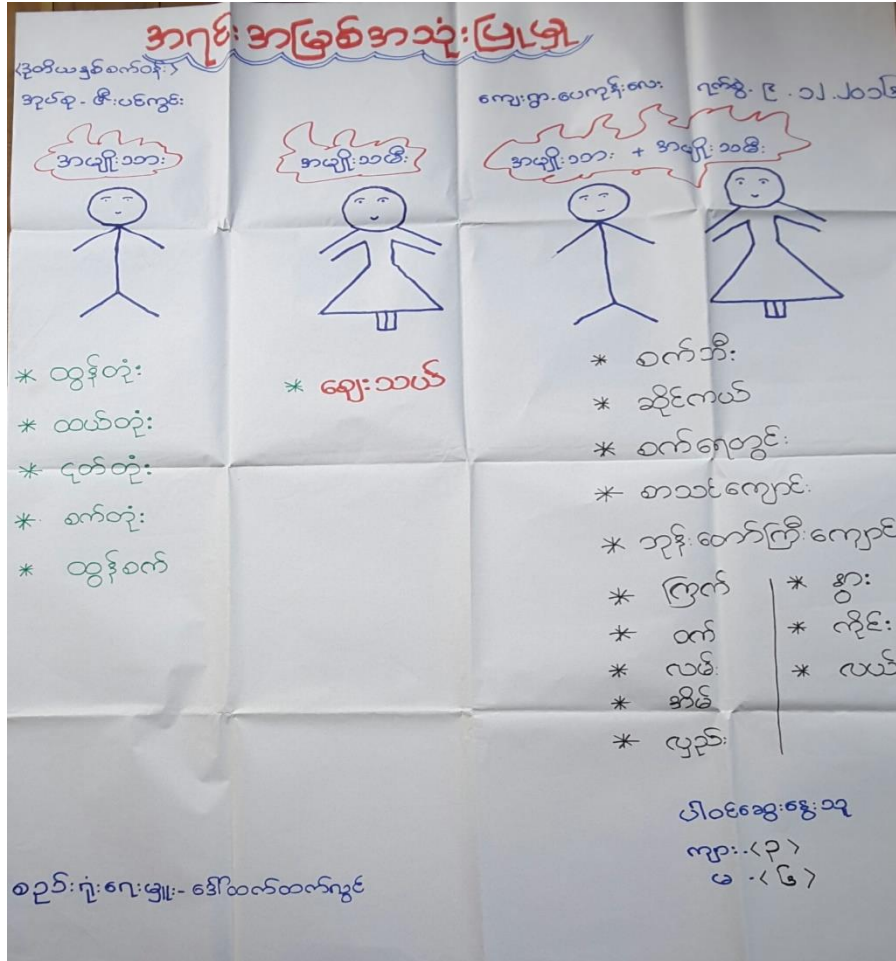 အရင်းအမြစ်အသုံးပြုမှု
<ဒုတိယနှစ်စက်ဝန်း>
အုပ်စု - ဇီးပင်ကွင်း
ကျေးရွာ - ပေကုန်းလေး ရက်စွဲ - ၉ . ၁၂ . ၂၀၁၆
အမျိုးသား
အမျိုးသမီး
အမျိုးသား + အမျိုးသမီး
* ထွန်တုံး
* ထယ်တုံး
* ငုတ်တုံး
* စက်တုံး
* ထွန်စက်
* ဈေးသယ်
* စက်ဘီး
* ဆိုင်ကယ်
* စက်ရေတွင်း
* စာသင်ကျောင်း
* ဘုန်းတော်ကြီးကျောင်း
* ကြက်
* ဝက်
* လမ်း
* အိမ်
* လှည်း
* နွား
* ကိုင်း
* လယ်
ပါဝင်ဆွေးနွေးသူ
ကျား - <၃>
မ - <၆>
စည်းရုံးရေးမှူး - ဒေါ်ထက်ထက်လွင်